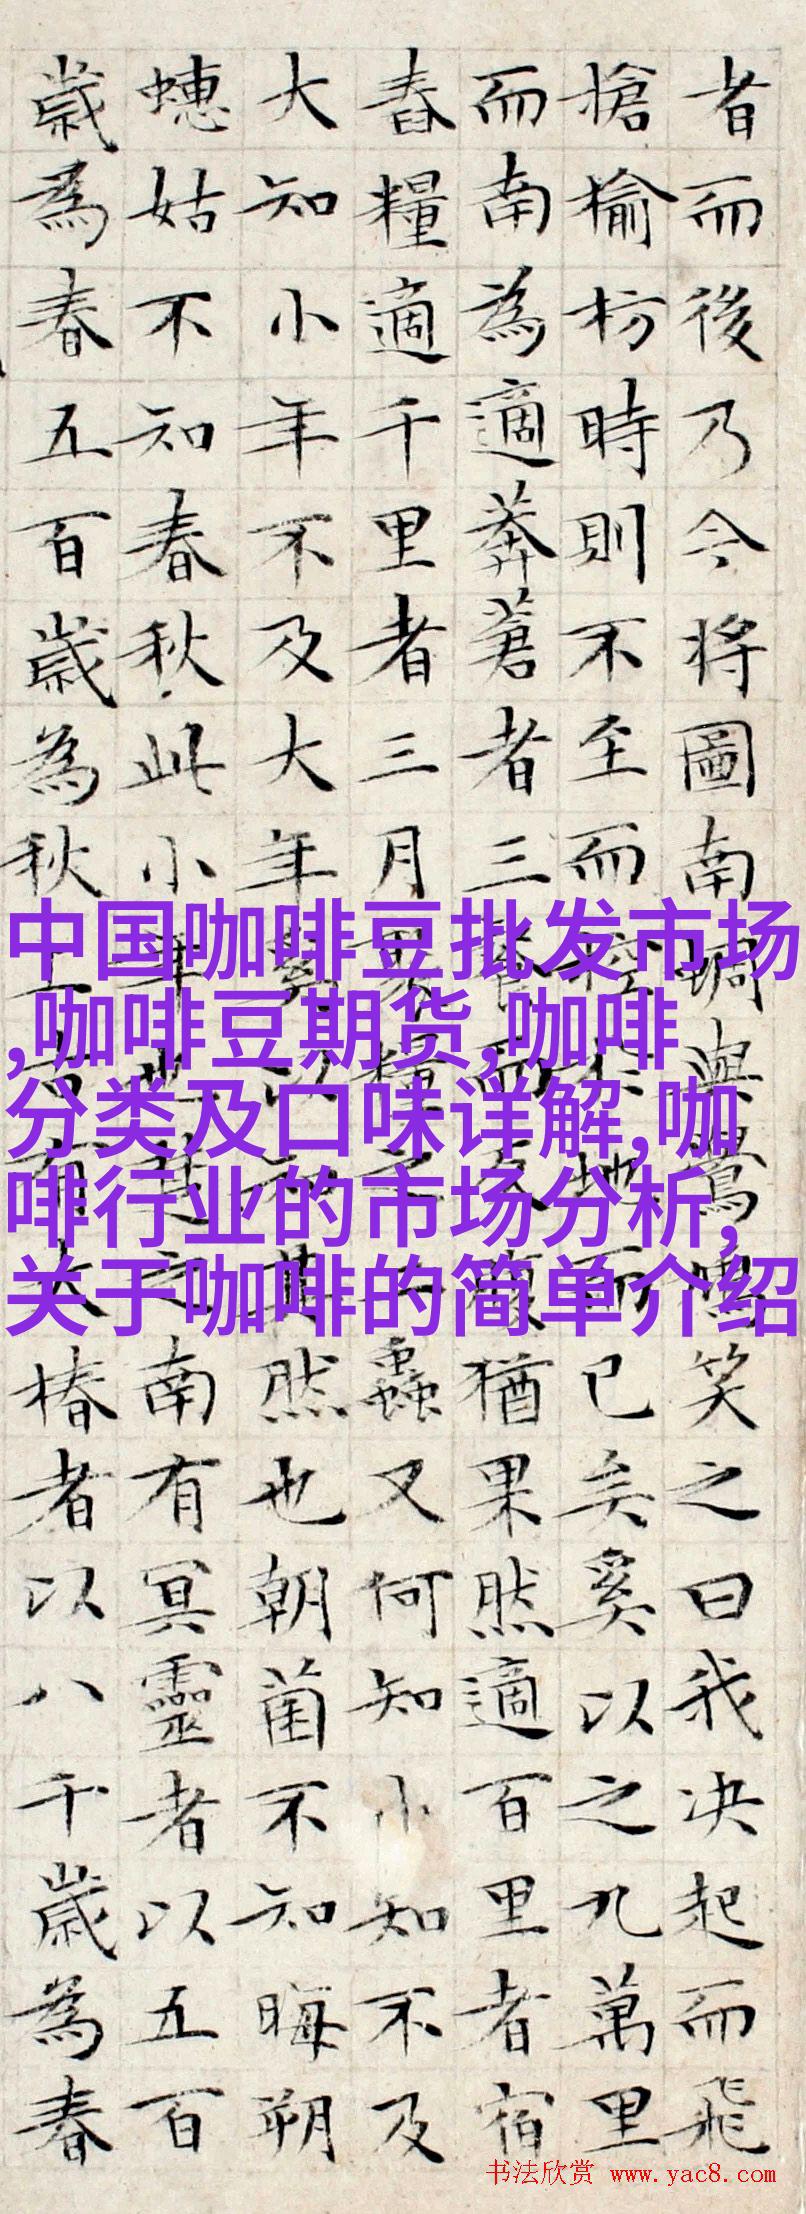 者而後乃今将圖南蜩與鷽鳩笑之曰我决起而飛
搶榆枋時則不至而控於地而已矣奚以之九萬里
而南為適莽蒼者三飡而反腹猶果然適百里者宿
舂糧適千里者三月聚糧之二蟲又何知小知不及
大知小年不及大年奚以知其然也朝菌不知晦朔
蟪姑不知春秋此小年也楚之南有冥靈者以五百
歲為春五百歲為秋上古有大椿者以八千歲為春
中国咖啡豆批发市场
,咖啡豆期货,咖啡
分类及口味详解,咖
啡行业的市场分析,
关于咖啡的简单介绍
书法欣赏 www.yac8.com